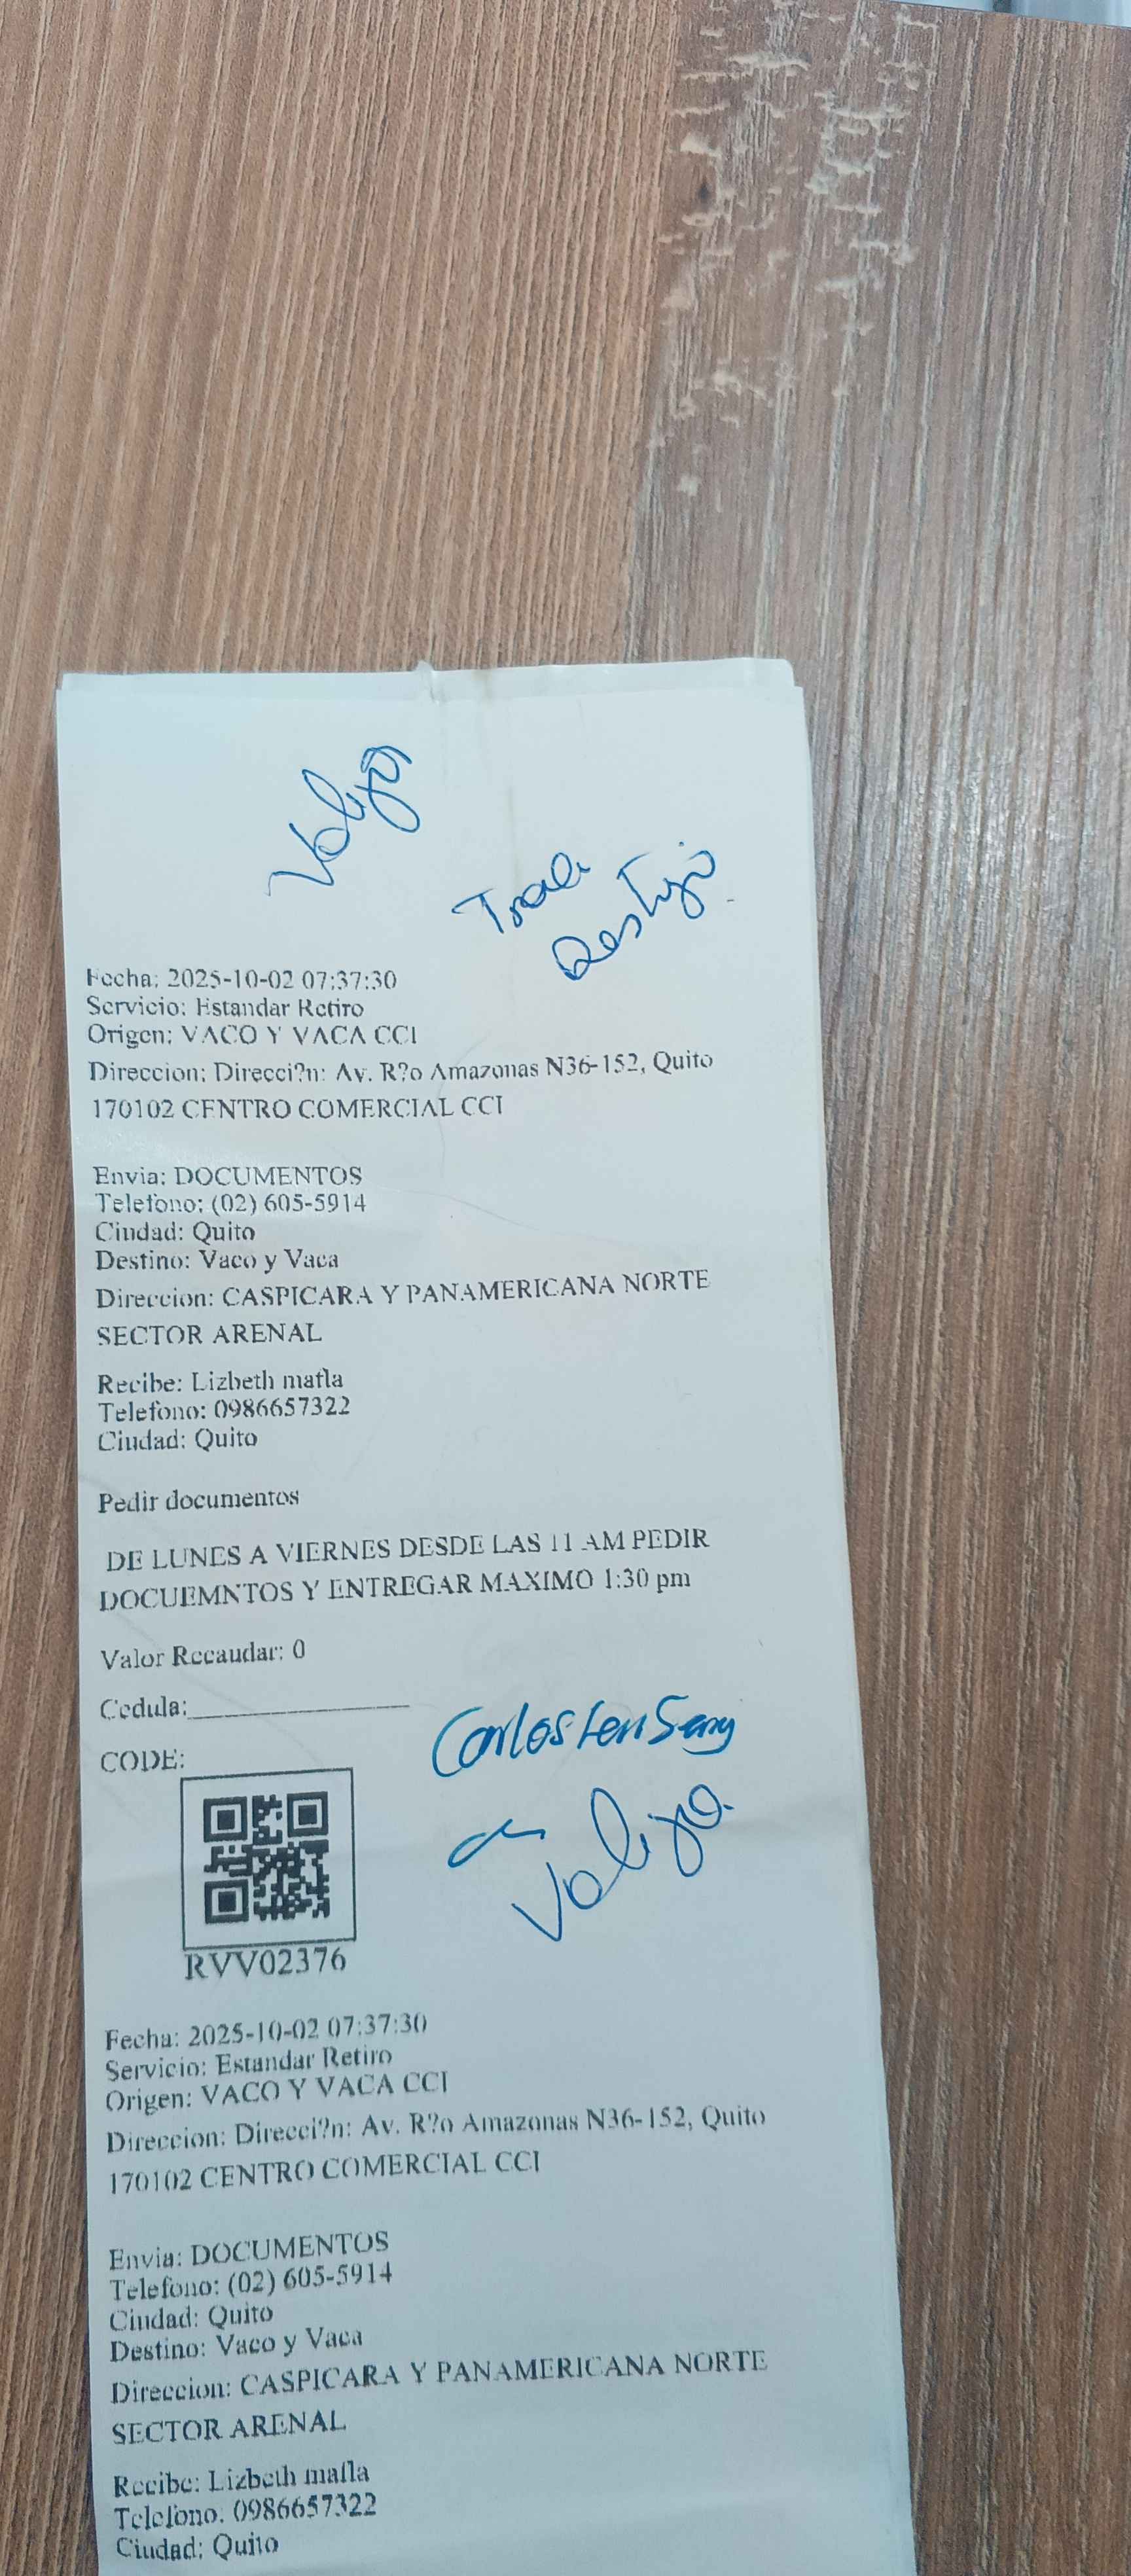 Valija
Fecha: 2025-10-02 07:37:30
Servicio: Estandar Retiro
Origen: VACO Y VACA CCI
Direccion: Direcci?n: Av. R?o Amazonas N36-152, Quito
170102 CENTRO COMERCIAL CCI
Envia: DOCUMENTOS
Telefono: (02) 605-5914
Ciudad: Quito
Destino: Vaco y Vaca
Direccion: CASPICARA Y PANAMERICANA NORTE
SECTOR ARENAL
Recibe: Lizbeth mafla
Telefono: 0986657322
Ciudad: Quito
Pedir documentos
DE LUNES A VIERNES DESDE LAS 11 AM PEDIR
DOCUEMNTOS Y ENTREGAR MAXIMO 1:30 pm
Valor Recaudar: 0
Cedula:
Carlos
CODE:
Valija
RVV02376
Fecha: 2025-10-02 07:37:30
Servicio: Estandar Retiro
Origen: VACO Y VACA CCI
Direccion: Direcci?n: Av. R?o Amazonas N36-152, Quito
170102 CENTRO COMERCIAL CCI
Envia: DOCUMENTOS
Telefono: (02) 605-5914
Ciudad: Quito
Destino: Vaco y Vaca
Direccion: CASPICARA Y PANAMERICANA NORTE
SECTOR ARENAL
Recibe: Lizbeth mafla
Telefono: 0986657322
Ciudad: Quito